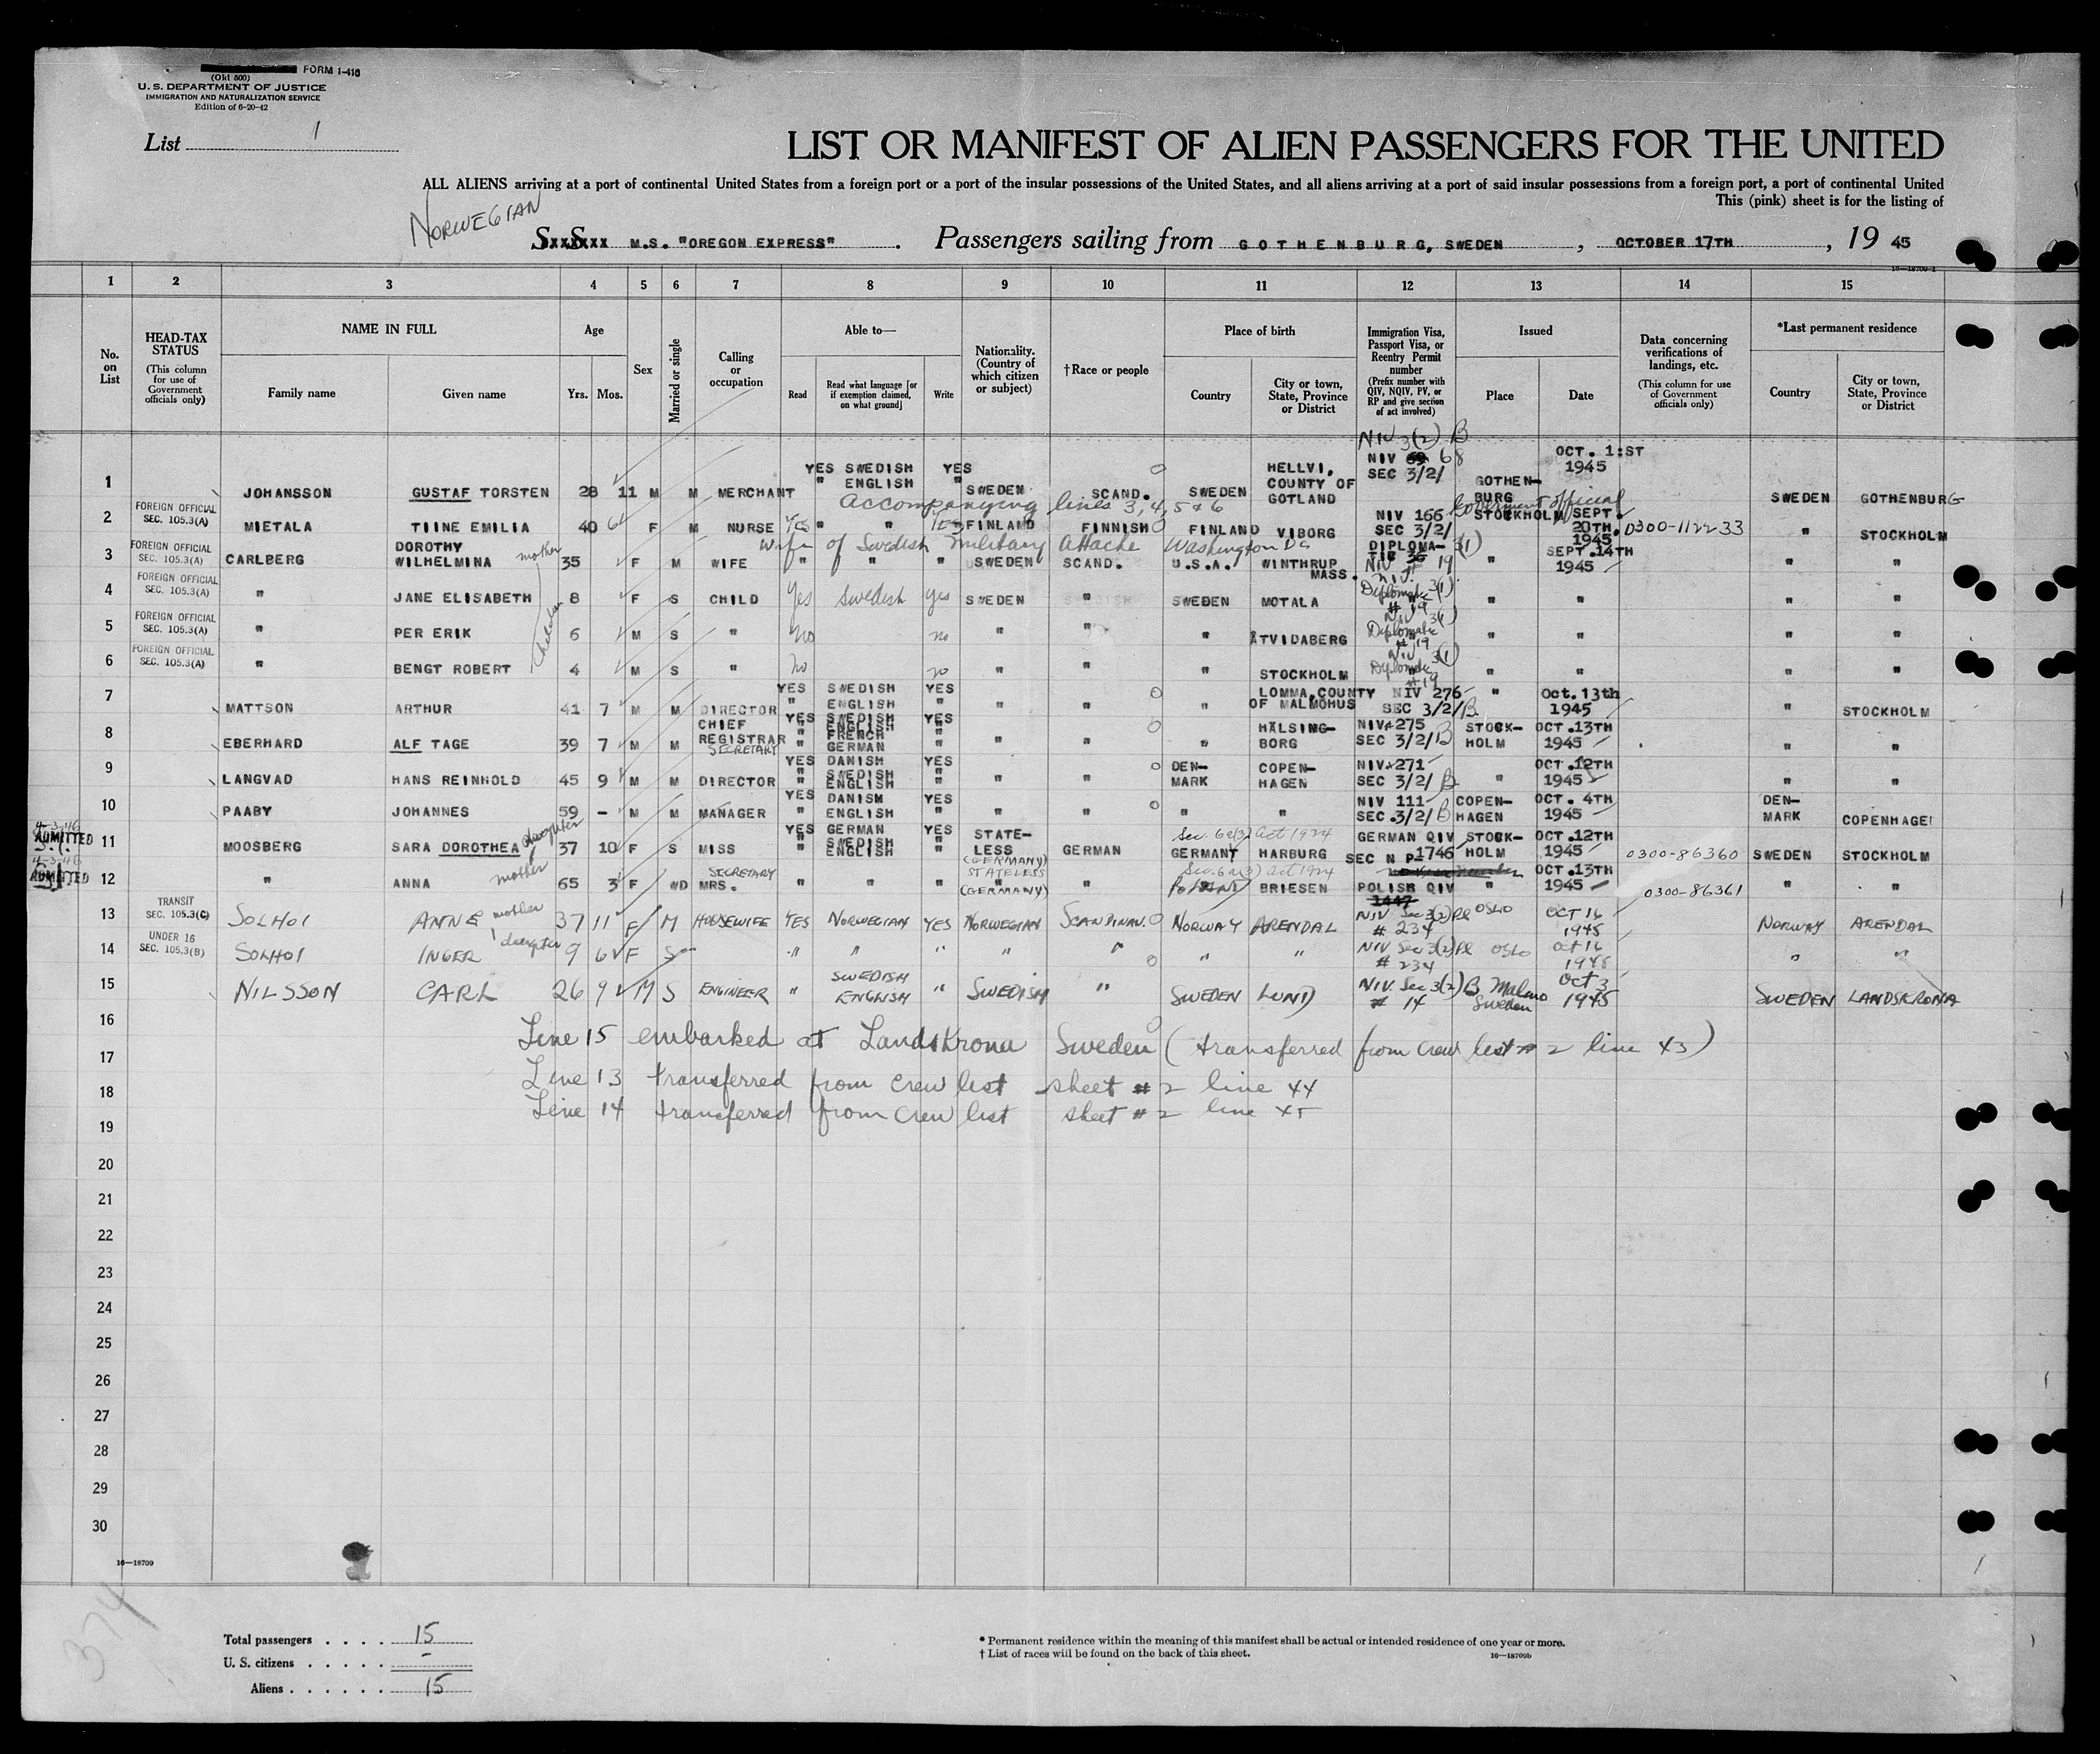 FORM I-416
(Old 500)
U. S. DEPARTMENT OF JUSTICE
IMMIGRATION AND NATURALIZATION SERVICE
Edition of 6-20-42
List 1
LIST OR MANIFEST OF ALIEN PASSENGERS FOR THE UNITED
ALL ALIENS arriving at a port of continental United States from a foreign port or a port of the insular possessions of the United States, and all aliens arriving at a port of said insular possessions from a foreign port, a port of continental United
This (pink) sheet is for the listing of
NORWEGIAN
M.S. "OREGON EXPRESS" . Passengers sailing from GOTHENBURG, SWEDEN , OCTOBER 17TH , 19 45
16—18709-1
1 2 3 4 5 6 7 8 9 10 11 12 13 14 15
No. on List
HEAD-TAX STATUS (This column for use of Government officials only)
NAME IN FULL
Family name Given name
Age Yrs. Mos.
Sex
Married or single
Calling or occupation
Able to— Read Read what language [or if exemption claimed, on what ground] Write
Nationality. (Country of which citizen or subject)
†Race or people
Place of birth Country City or town, State, Province or District
Immigration Visa, Passport Visa, or Reentry Permit number (Prefix number with QIV, NQIV, PV, or RP and give section of act involved)
Issued Place Date
Data concerning verifications of landings, etc. (This column for use of Government officials only)
*Last permanent residence Country City or town, State, Province or District
NIV 3(2) B
1 JOHANSSON GUSTAF TORSTEN 28 11 M M MERCHANT YES SWEDISH YES " ENGLISH " SWEDEN SCAND. SWEDEN HELLVI, COUNTY OF GOTLAND NIV 68 SEC 3/2/ GOTHEN- BURG OCT. 1:ST 1945 SWEDEN GOTHENBURG
Accompanying lines 3, 4, 5 & 6 Government official
2 FOREIGN OFFICIAL SEC. 105.3(A) MIETALA TIINE EMILIA 40 6 F M NURSE Yes " " Yes FINLAND FINNISH FINLAND VIBORG NIV 166 SEC 3/2/ STOCKHOLM SEPT. 20TH. 1945 0300-112233 " STOCKHOLM
wife of Swedish Military Attache Washington DC
3 FOREIGN OFFICIAL SEC. 105.3(A) CARLBERG DOROTHY WILHELMINA mother 35 F M WIFE " " " SWEDEN SCAND. U.S.A. WINTHRUP MASS. DIPLOMA- TIC NIV 19 3(1) " SEPT.14TH 1945 " "
4 FOREIGN OFFICIAL SEC. 105.3(A) " JANE ELISABETH 8 F S CHILD Yes Swedish yes SWEDEN " SWEDEN MOTALA NIV. Diplomatic 3(1) # 19 " " " "
children
5 FOREIGN OFFICIAL SEC. 105.3(A) " PER ERIK 6 M S " No no " " " ÅTVIDABERG NIV 3(1) Diplomatic # 19 " " " "
6 FOREIGN OFFICIAL SEC. 105.3(A) " BENGT ROBERT 4 M S " No no " " " STOCKHOLM NIV 3(1) Diplomatic # 19 " " " "
7 MATTSON ARTHUR 41 7 M M DIRECTOR YES SWEDISH YES " ENGLISH " " " " LOMMA, COUNTY OF MALMÖHUS NIV 276 SEC 3/2/ B " Oct. 13th 1945 " STOCKHOLM
8 EBERHARD ALF TAGE 39 7 M M CHIEF REGISTRAR SECRETARY YES SWEDISH YES " ENGLISH " FRENCH " GERMAN " " " " HÄLSING- BORG NIV 275 SEC 3/2/ B STOCK- HOLM OCT.13TH 1945 " "
9 LANGVAD HANS REINHOLD 45 9 M M DIRECTOR YES DANISH YES " SWEDISH " ENGLISH " " " DEN- MARK COPEN- HAGEN NIV 271 SEC 3/2/ B " OCT.12TH 1945 " "
10 PAABY JOHANNES 59 - M M MANAGER YES DANISM YES " ENGLISH " " " " " NIV 111 SEC.3/2/ B COPEN- HAGEN OCT. 4TH 1945 DEN- MARK COPENHAGE
11 4-3-46 ADMITTED MOOSBERG SARA DOROTHEA daughter 37 10 F S MISS SECRETARY YES GERMAN YES " SWEDISH " ENGLISH " STATE- LESS (GERMANY) GERMAN GERMANY HARBURG Sec. 6a(3) Act 1924 GERMAN QIV SEC N P 1746 STOCK- HOLM OCT.12TH 1945 0300-86360 SWEDEN STOCKHOLM
12 4-3-46 ADMITTED " ANNA mother 65 3 F WD MRS. " " " STATELESS " (GERMANY) " Sec. 6a(3) Act 1924 POLAND BRIESEN POLISH QIV 1447 " OCT.13TH 1945 0300-86361 " "
13 TRANSIT SEC. 105.3(C) SOLHOI ANNE mother 37 11 F M HOUSEWIFE YES NORWEGIAN YES NORWEGIAN SCANDINAV. NORWAY ARENDAL NIV Sec 3(2) Pl # 234 OSLO OCT 16 1945 NORWAY ARENDAL
14 UNDER 16 SEC. 105.3(B) SOLHOI INGER daughter 9 6 F S " " " " " " " NIV Sec 3(2) Pl # 234 OSLO Oct 16 1945 " "
15 NILSSON CARL 26 9 M S ENGINEER " SWEDISH ENGLISH " SWEDISH " SWEDEN LUND NIV. Sec 3(2) B # 14 Malmo Sweden Oct 3 1945 SWEDEN LANDSKRONA
16 Line 15 embarked at Landskrona Sweden ( transferred from crew list # 2 line 43 )
17
Line 13 transferred from crew list sheet # 2 line 44
18
Line 14 transferred from crew list sheet # 2 line 45
19
20
21
22
23
24
25
26
27
28
29
30
16—18709
374
Total passengers . . . . 15
U. S. citizens . . . . . -
Aliens . . . . . . 15
* Permanent residence within the meaning of this manifest shall be actual or intended residence of one year or more.
† List of races will be found on the back of this sheet.
16—18709b